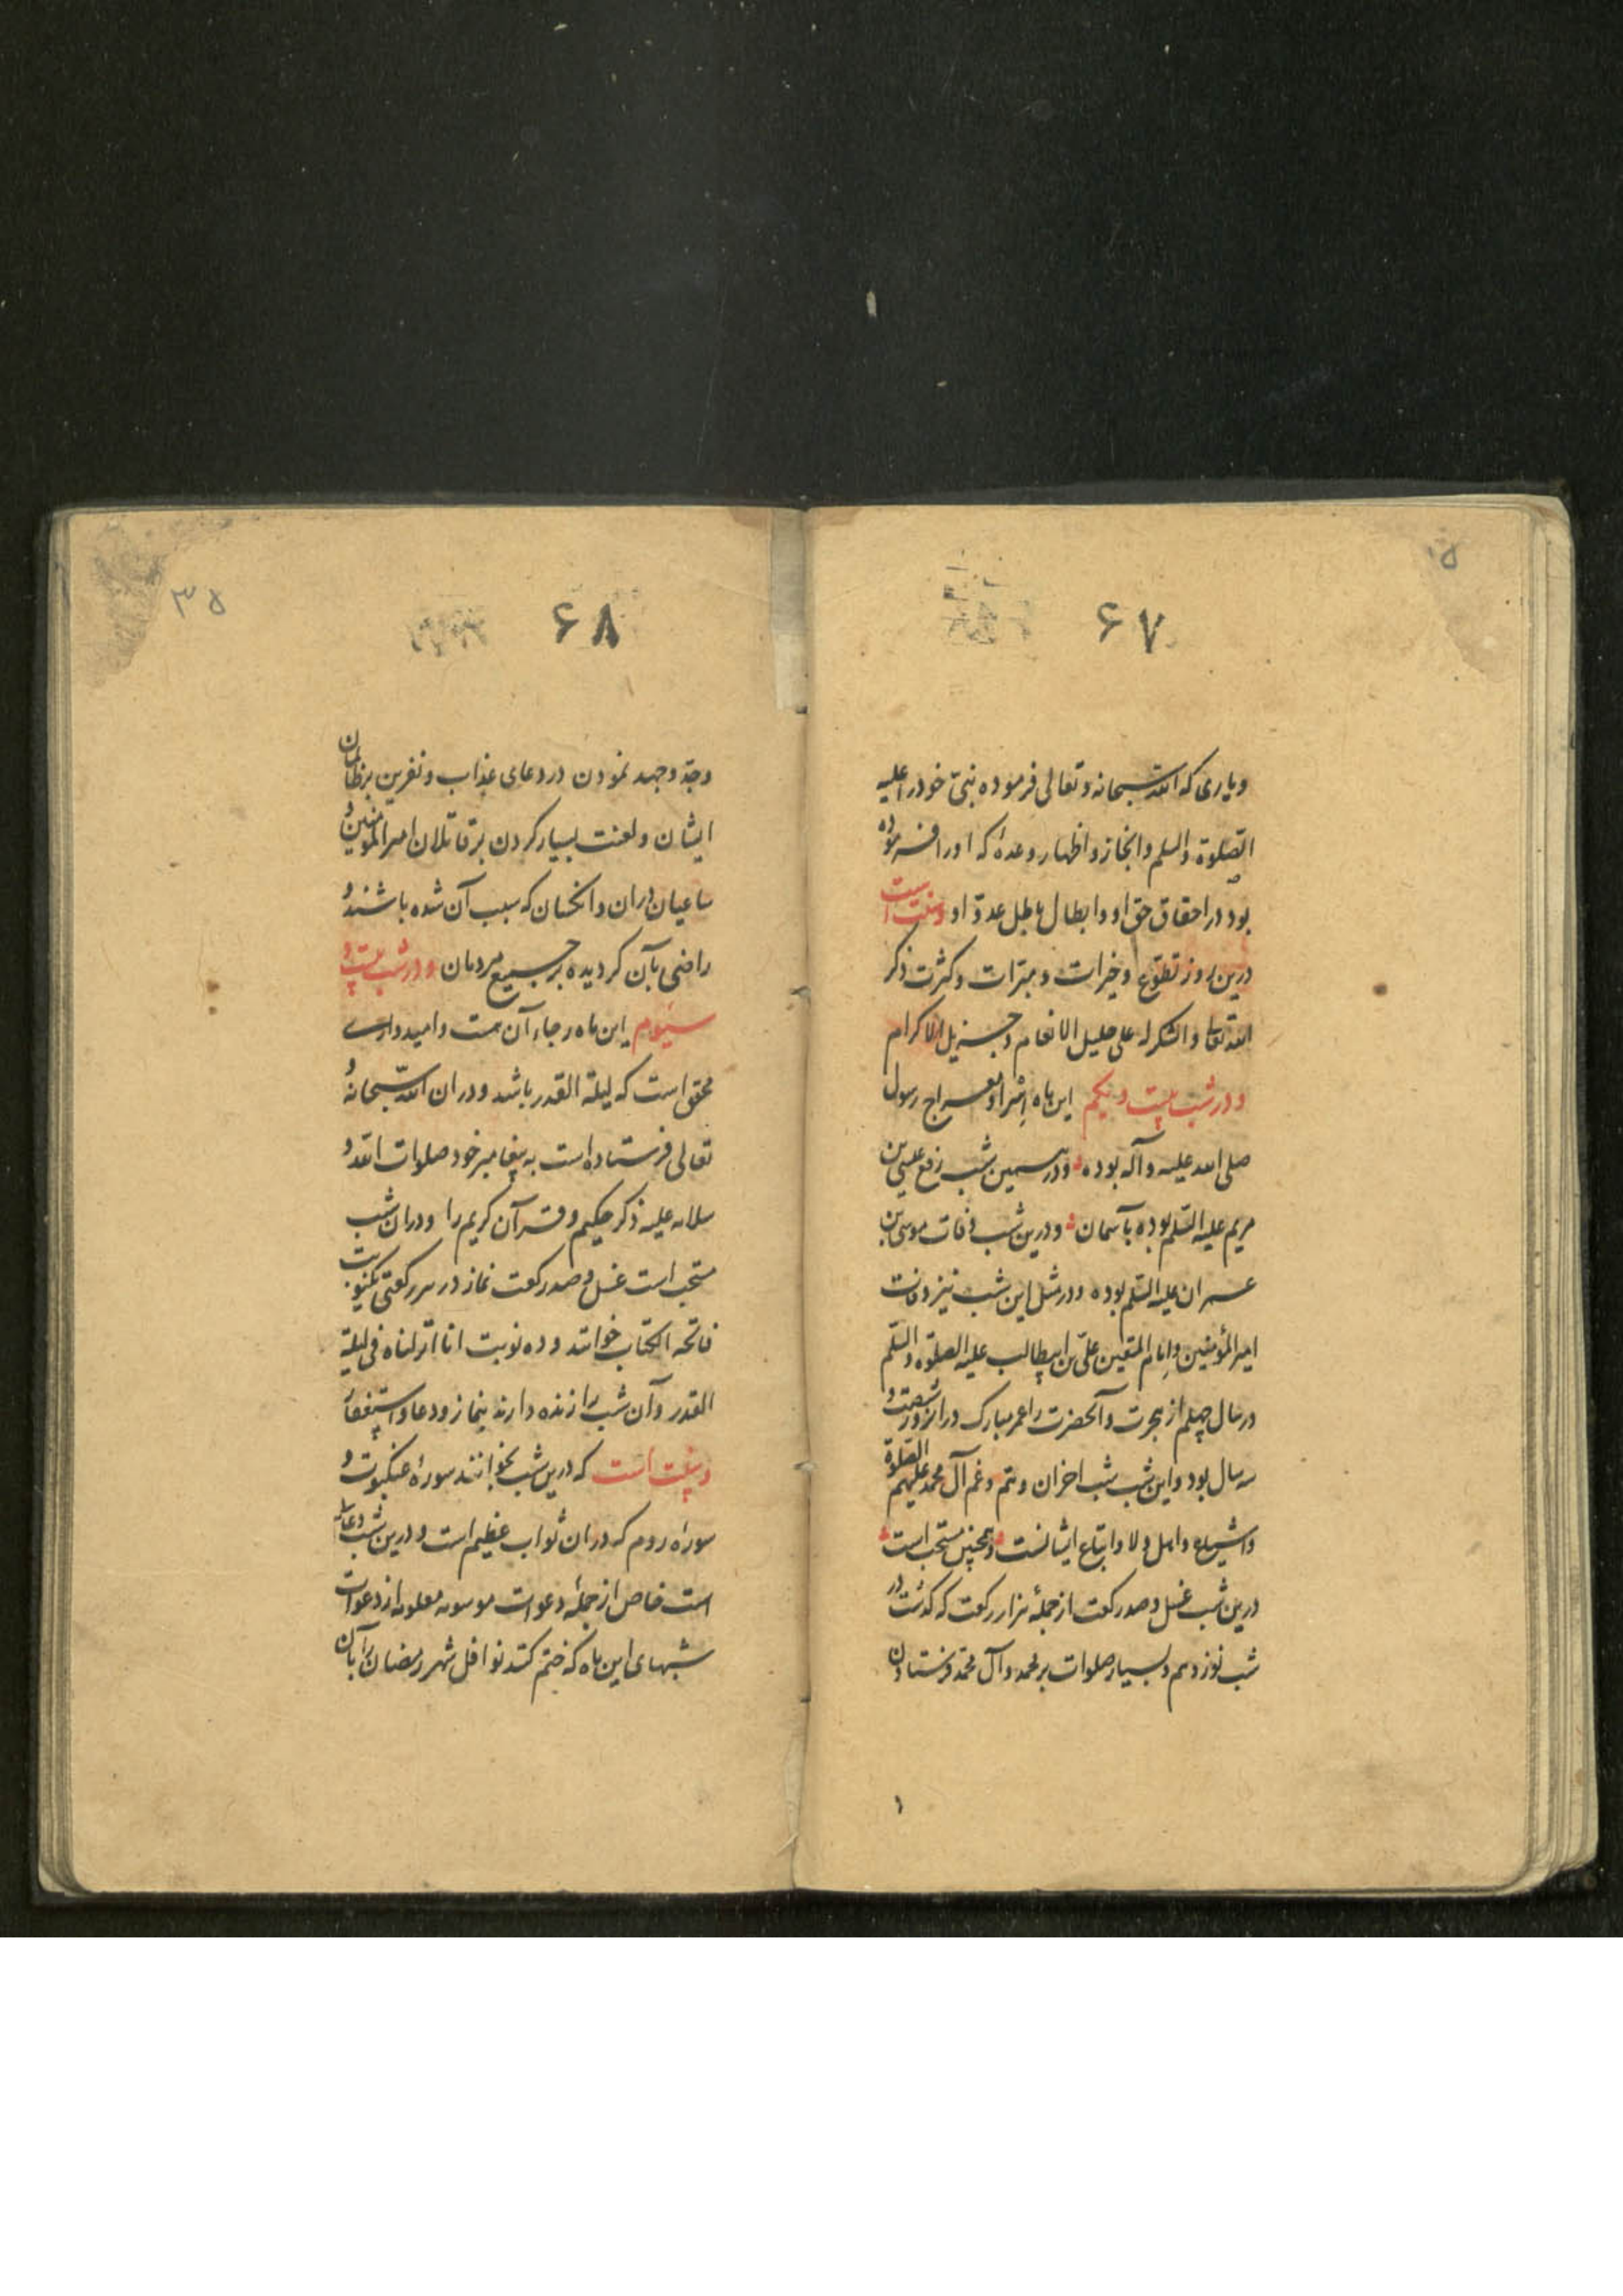 ۶۷
ویاری که الله سبحانه وتعالی فرموده نبیّ خود را علیه
الصّلوة والسلم وانجاز واظهار وعدهٔ که اورا فرموده
بود در احقاق حق او وابطال باطل عدوّ او وسنّت است
درین روز تطوّع وخیرات ومبرّات وکثرت ذکر
الله تعالی والشکر له علی جلیل الانعام وجزیل الاکرام
ودر شب بیست ویکم این ماه اِسْرا ومعراج رسول
صلی الله علیه وآله بوده ودر همین شب رفع عیسی بن
مریم علیه السّلم بوده بآسمان ودرین شب وفات موسی بن
عمران علیه السّلم بوده ودر مثل این شب نیز وفات
امیر المؤمنین وامام المتقین علیّ بن ابیطالب علیه الصلوة والسّلم
در سال چهلم از هجرت وآنحضرت را عمر مبارک در انروز شصت و
سه سال بود واین شب شب احزان وهمّ وغم آل محمد علیهم الصّلوة
واشیاع واهل ولا واتباع ایشانست وهمچنین مستحب است
درین شب غسل وصد رکعت از جملهٔ هزار رکعت که گذشت در
شب نوزدهم وبسیار صلوات بر محمد وآل محمّد فرستادن
۶۸
۳۵
وجدّ وجهد نمودن در دعای عذاب ونفرین بر ظالمان
ایشان ولعنت بسیار کردن بر قاتلان امیر المؤمنین و
ساعیان دران وانکسان که سبب آن شده باشند و
راضی بآن گردیده بر جمیع مردمان ودر شب بیست و
سیّوم این ماه رجاء آن هست وامیدواری
محقق است که لیلة القدر باشد ودران الله سبحانه و
تعالی فرستاده است به پیغامبر خود صلوات الله و
سلامه علیه ذکر حکیم وقرآن کریم را ودران شب
مستحب است غسل وصد رکعت نماز در هر رکعتی یکنوبت
فاتحه الکتاب خوانند وده نوبت انا انزلناه فی لیلة
القدر وآن شب را زنده دارند بنماز ودعا واستغفار
وسنّت است که درین شب بخوانند سورهٔ عنکبوت و
سورهٔ روم که دران ثواب عظیم است ودرین شب دعائی
است خاص از جملهٔ دعوات موسومه معلومه از دعوات
شبهای این ماه که ختم کنند نوافل شهر رمضان را بآن